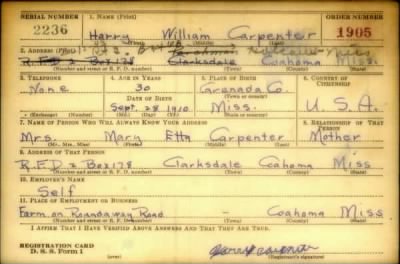 SERIAL NUMBER 1. NAME (Print) ORDER NUMBER
2236 Harry William Carpenter 1905
(First) (Middle) (Last)
2. ADDRESS (Print)
R.F.D 2 Box 178 Clarksdale Coahoma Miss.
(Number and street or R. F. D. number) (Town) (County) (State)
3. TELEPHONE 4. AGE IN YEARS 5. PLACE OF BIRTH 6. COUNTRY OF CITIZENSHIP
None 30 Grenada Co.
(Town or county)
DATE OF BIRTH
Sept. 28 1910 Miss. U.S.A.
(Exchange) (Number) (Mo.) (Day) (Yr.) (State or country)
7. NAME OF PERSON WHO WILL ALWAYS KNOW YOUR ADDRESS 8. RELATIONSHIP OF THAT PERSON
Mrs. Mary Etta Carpenter Mother
(Mr., Mrs., Miss) (First) (Middle) (Last)
9. ADDRESS OF THAT PERSON
R.F.D 2 Box 178 Clarksdale Coahoma Miss
(Number and street or R. F. D. number) (Town) (County) (State)
10. EMPLOYER'S NAME
Self
11. PLACE OF EMPLOYMENT OR BUSINESS
Farm on Roundaway Road - Coahoma Miss
(Number and street or R. F. D. number) (Town) (County) (State)
I AFFIRM THAT I HAVE VERIFIED ABOVE ANSWERS AND THAT THEY ARE TRUE.
REGISTRATION CARD
D. S. S. Form 1 (over) (Registrant's signature)